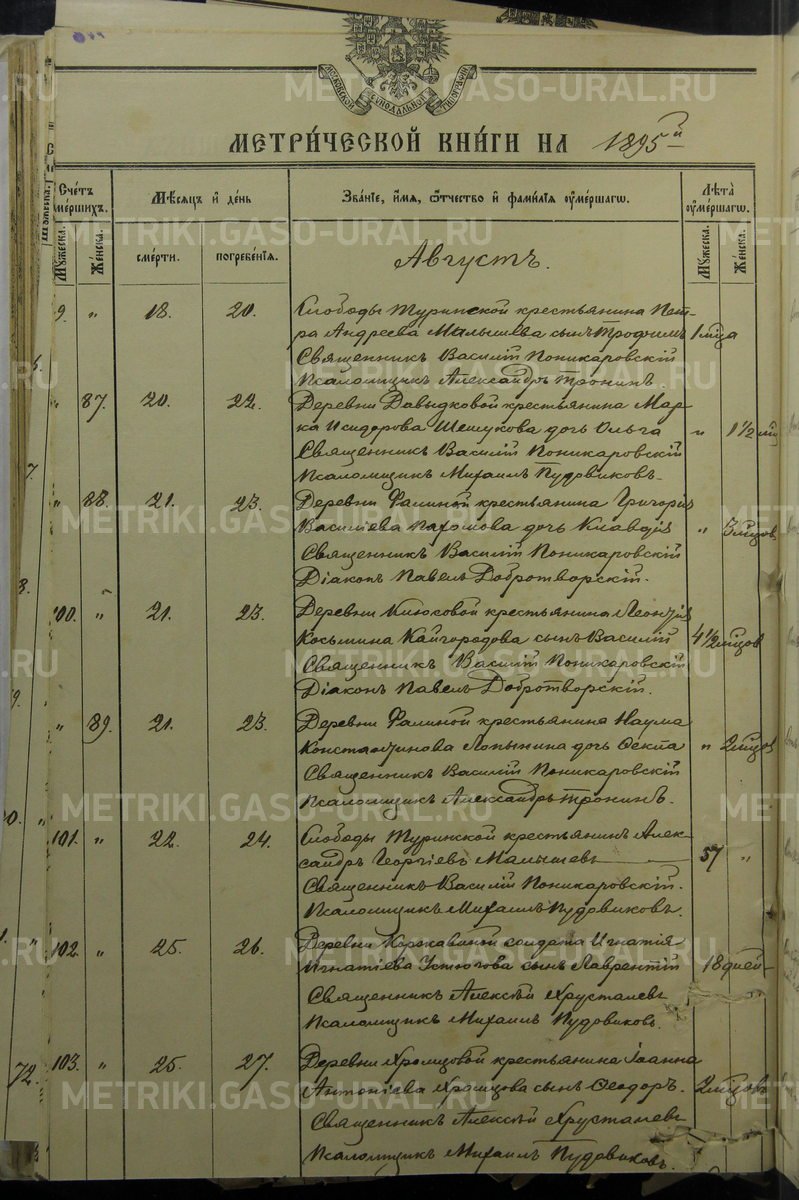 МОСКОВСКОЙ СѴНОДАЛЬНОЙ ТИПОГРАФІИ
МЕТРИ́ЧЕСКОЙ КНИ́ГИ НА 1895й
Сче́тъ ᲂумершихъ.
Мѣсяцъ и день
Зва́нїе, и́мя, ѻтчество и фами́лїя ᲂуме́ршагѡ.
Лѣта̀ ᲂуме́ршагѡ.
Мꙋжеска.
Же́нска.
сме́рти.
погребе́нїѧ.
Мꙋжеска.
Же́нска.
Августъ.
9. " 18. 20. Слободы Туринской крестьянина Пет-
ра Андреева Малышева сынъ Трофимъ 1 мца
Священникъ Василій Поникаровскій
Псаломщикъ Александръ Тронинъ.
" 87. 20. 22. Деревни Давыдковой крестьянина Мар-
ка Исидорова Шешукова дочь Ольга " 1½ мц
Священникъ Василій Поникаровскій
Псаломщикъ Михаилъ Пудовиковъ.
" 88. 21. 23. Деревни Фалиной крестьянина Григорія
Василіева Пахомова дочь Клавдія " 3 мцов
Священникъ Василій Поникаровскій
Діаконъ Павелъ Добротворскій.
100. " 21. 23. Деревни крестьянина Леонтія
Косьмина Кайгородова сынъ Василій 4½ мцов
Священникъ Василій Поникаровскій
Діаконъ Павелъ Добротворскій.
" 89. 21. 23. Деревни Фалиной крестьянина Наума
Константинова Лапынина дочь Ѳекла " 2 мцов
Священникъ Василій Поникаровскій
Псаломщикъ Александръ Тронинъ.
101. " 22. 24. Слободы Туринской крестьянинъ Алек-
сандръ Георгіевъ Малышевъ 57 "
Священникъ Василій Поникаровскій.
Псаломщикъ Михаилъ Пудовиковъ.
102. " 25. 26. Деревни Коржавиной солдата Игнатія
Игнатіева Устюгова сынъ Лаврентій 18 дней
Священникъ Алексѣй Хрусталевъ
Псаломщикъ Михаилъ Пудовиковъ.
72. 103. " 25. 27. Деревни Храмцовой крестьянина Іоанна
Антоніева Храмцова сынъ Ѳеодоръ. 2 мцовъ
Священникъ Алексѣй Хрусталевъ
Псаломщикъ Михаилъ Пудовиковъ.
METRIKI.GASO-URAL.RU